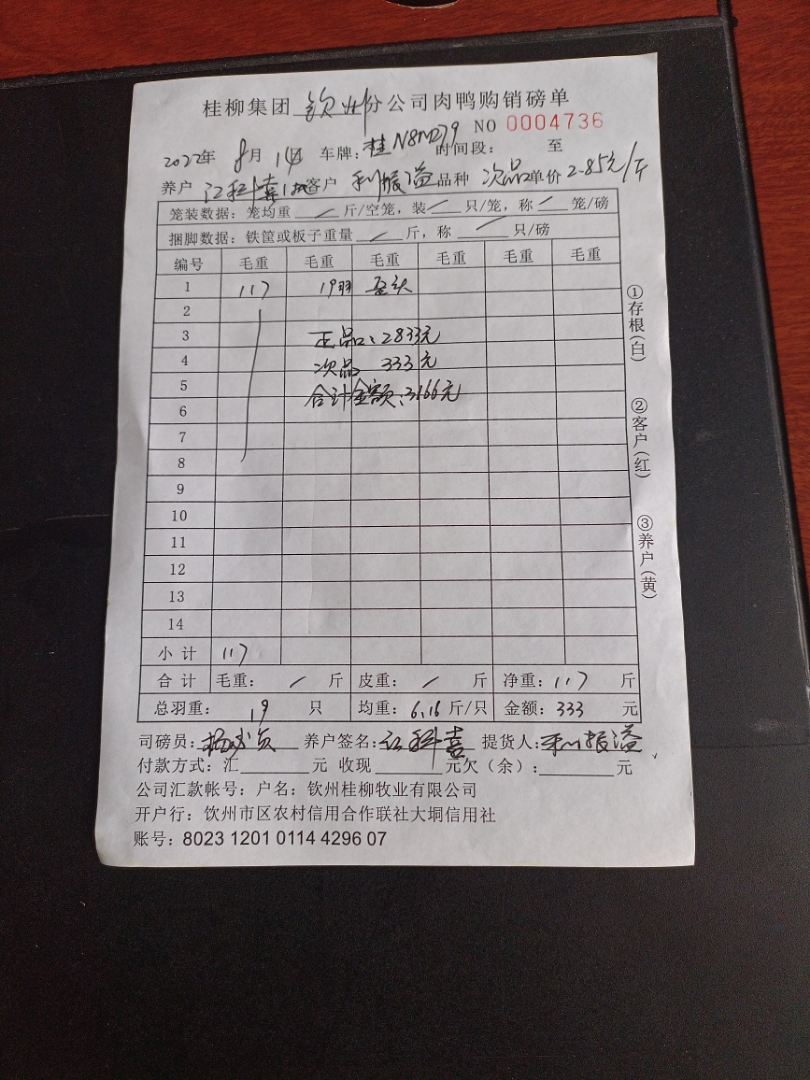 桂柳集团 钦州分公司肉鸭购销磅单
NO 0004736
2022年 8月 14日 车牌：桂N8M279 时间段： 至
养户 江科喜1批客户 利振溢 品种 次品 单价 2.85元/斤
笼装数据：笼均重 / 斤/空笼，装 / 只/笼，称 / 笼/磅
捆脚数据：铁筐或板子重量 / 斤，称 / 只/磅
编号 毛重 毛重 毛重 毛重 毛重 毛重
1 117 19羽 歪头
2
3 正品：2833元
4 次品 333元
5 合计金额：3166元
6
7
8
9
10
11
12
13
14
小计 117
合计 毛重： / 斤 皮重： / 斤 净重：117 斤
总羽重： 19 只 均重：6.16 斤/只 金额：333 元
司磅员： 养户签名：江科喜 提货人：利振溢
付款方式：汇 元 收现 元欠（余）： 元
公司汇款帐号：户名：钦州桂柳牧业有限公司
开户行：钦州市区农村信用合作联社大垌信用社
账号：8023 1201 0114 4296 07
①存根(白)
②客户(红)
③养户(黄)